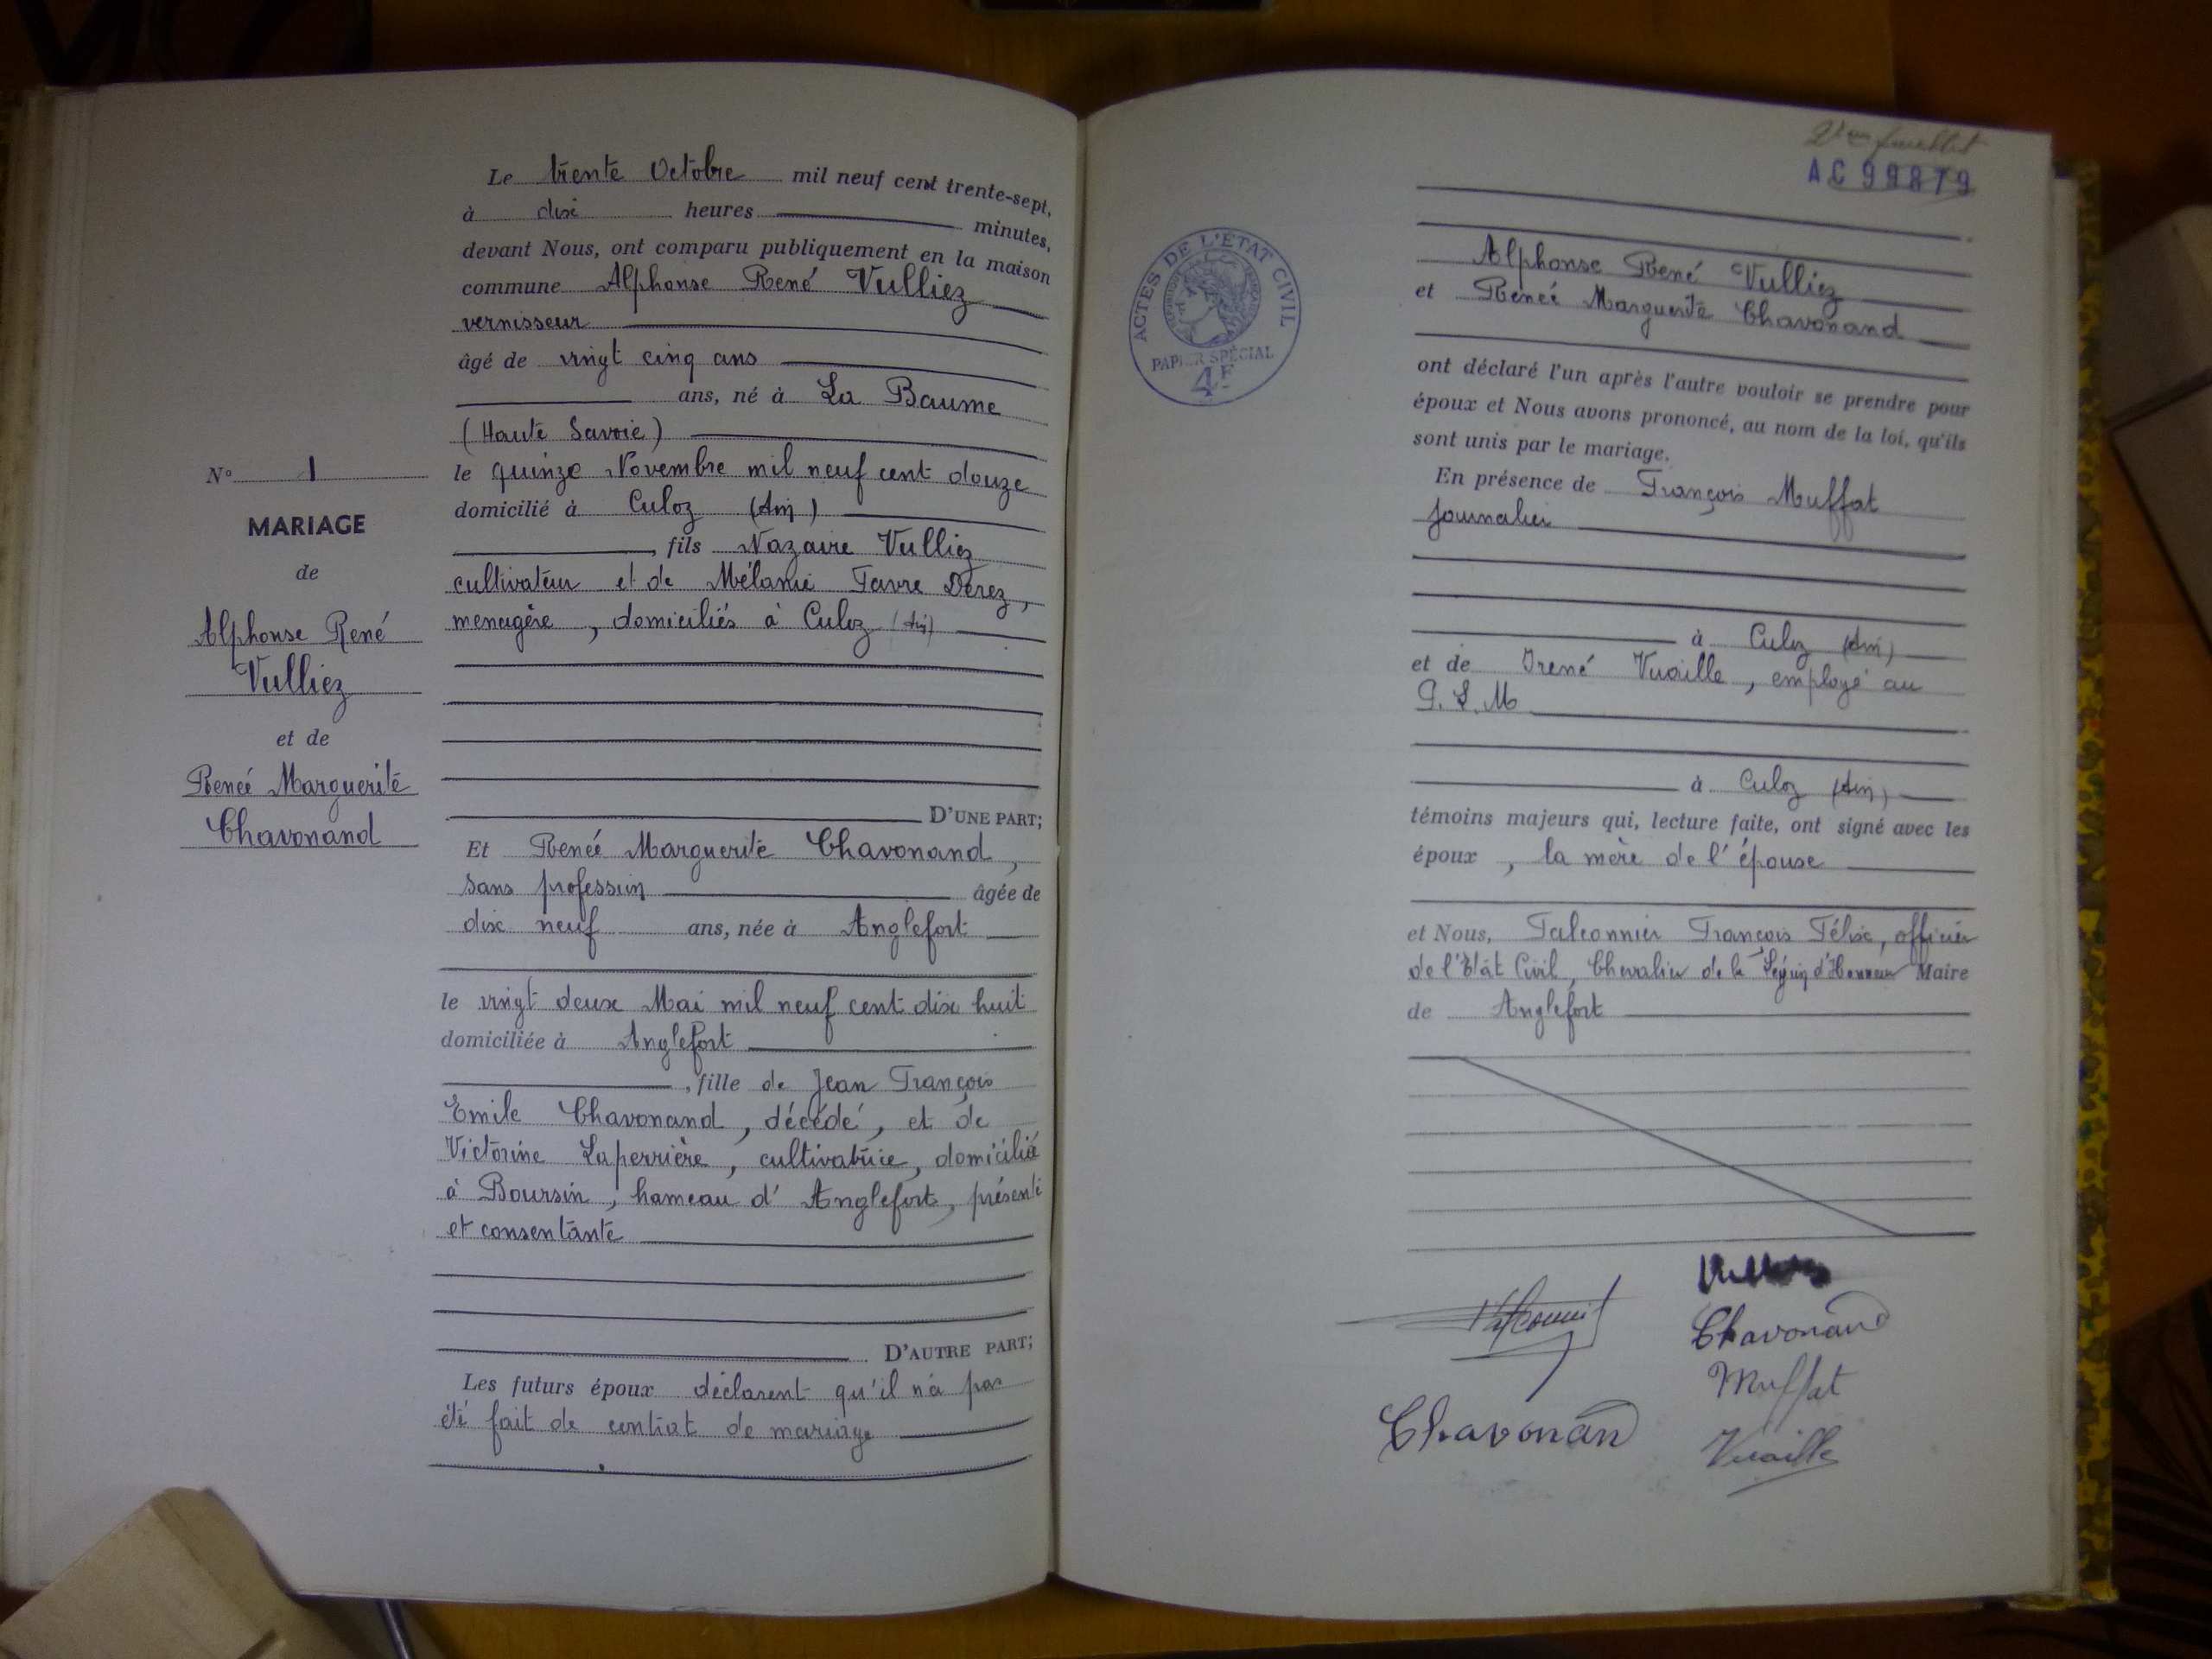 N° 1
MARIAGE
de
Alphonse René
Vulliez
et de
Renée Marguerite
Chavonand
Le trente Octobre mil neuf cent trente-sept,
à dix heures minutes,
devant Nous, ont comparu publiquement en la maison
commune Alphonse René Vulliez
vernisseur
âgé de vingt cinq ans
ans, né à La Baume
(Haute Savoie)
le quinze Novembre mil neuf cent douze
domicilié à Culoz (Ain)
, fils Nazaire Vulliez
cultivateur et de Mélanie Favre Derez,
menagère, domiciliés à Culoz (Ain)
D'UNE PART;
Et Renée Marguerite Chavonand,
sans profession âgée de
dix neuf ans, née à Anglefort
le vingt deux Mai mil neuf cent dix huit
domiciliée à Anglefort
, fille de Jean François
Emile Chavonand, décédé, et de
Victorine Laperrière, cultivatrice, domiciliée
à Boursin, hameau d'Anglefort, présente
et consentante
D'AUTRE PART;
Les futurs époux déclarent qu'il n'a pas
été fait de contrat de mariage
2ème feuillet
AC 99879
ACTES DE L'ÉTAT CIVIL
RÉPUBLIQUE FRANÇAISE
PAPIER SPÉCIAL
4F
Alphonse René Vulliez
et Renée Marguerite Chavonand
ont déclaré l'un après l'autre vouloir se prendre pour
époux et Nous avons prononcé, au nom de la loi, qu'ils
sont unis par le mariage.
En présence de François Muffat
journalier
à Culoz (Ain)
et de Irené Vuaille, employé au
P.L.M
à Culoz (Ain)
témoins majeurs qui, lecture faite, ont signé avec les
époux, la mère de l'épouse
et Nous, Falconnier François Félix, officier
de l'Etat Civil, Chevalier de la Légion d'Honneur Maire
de Anglefort
Chavonand
Muffat
Chavonand
Vuaille